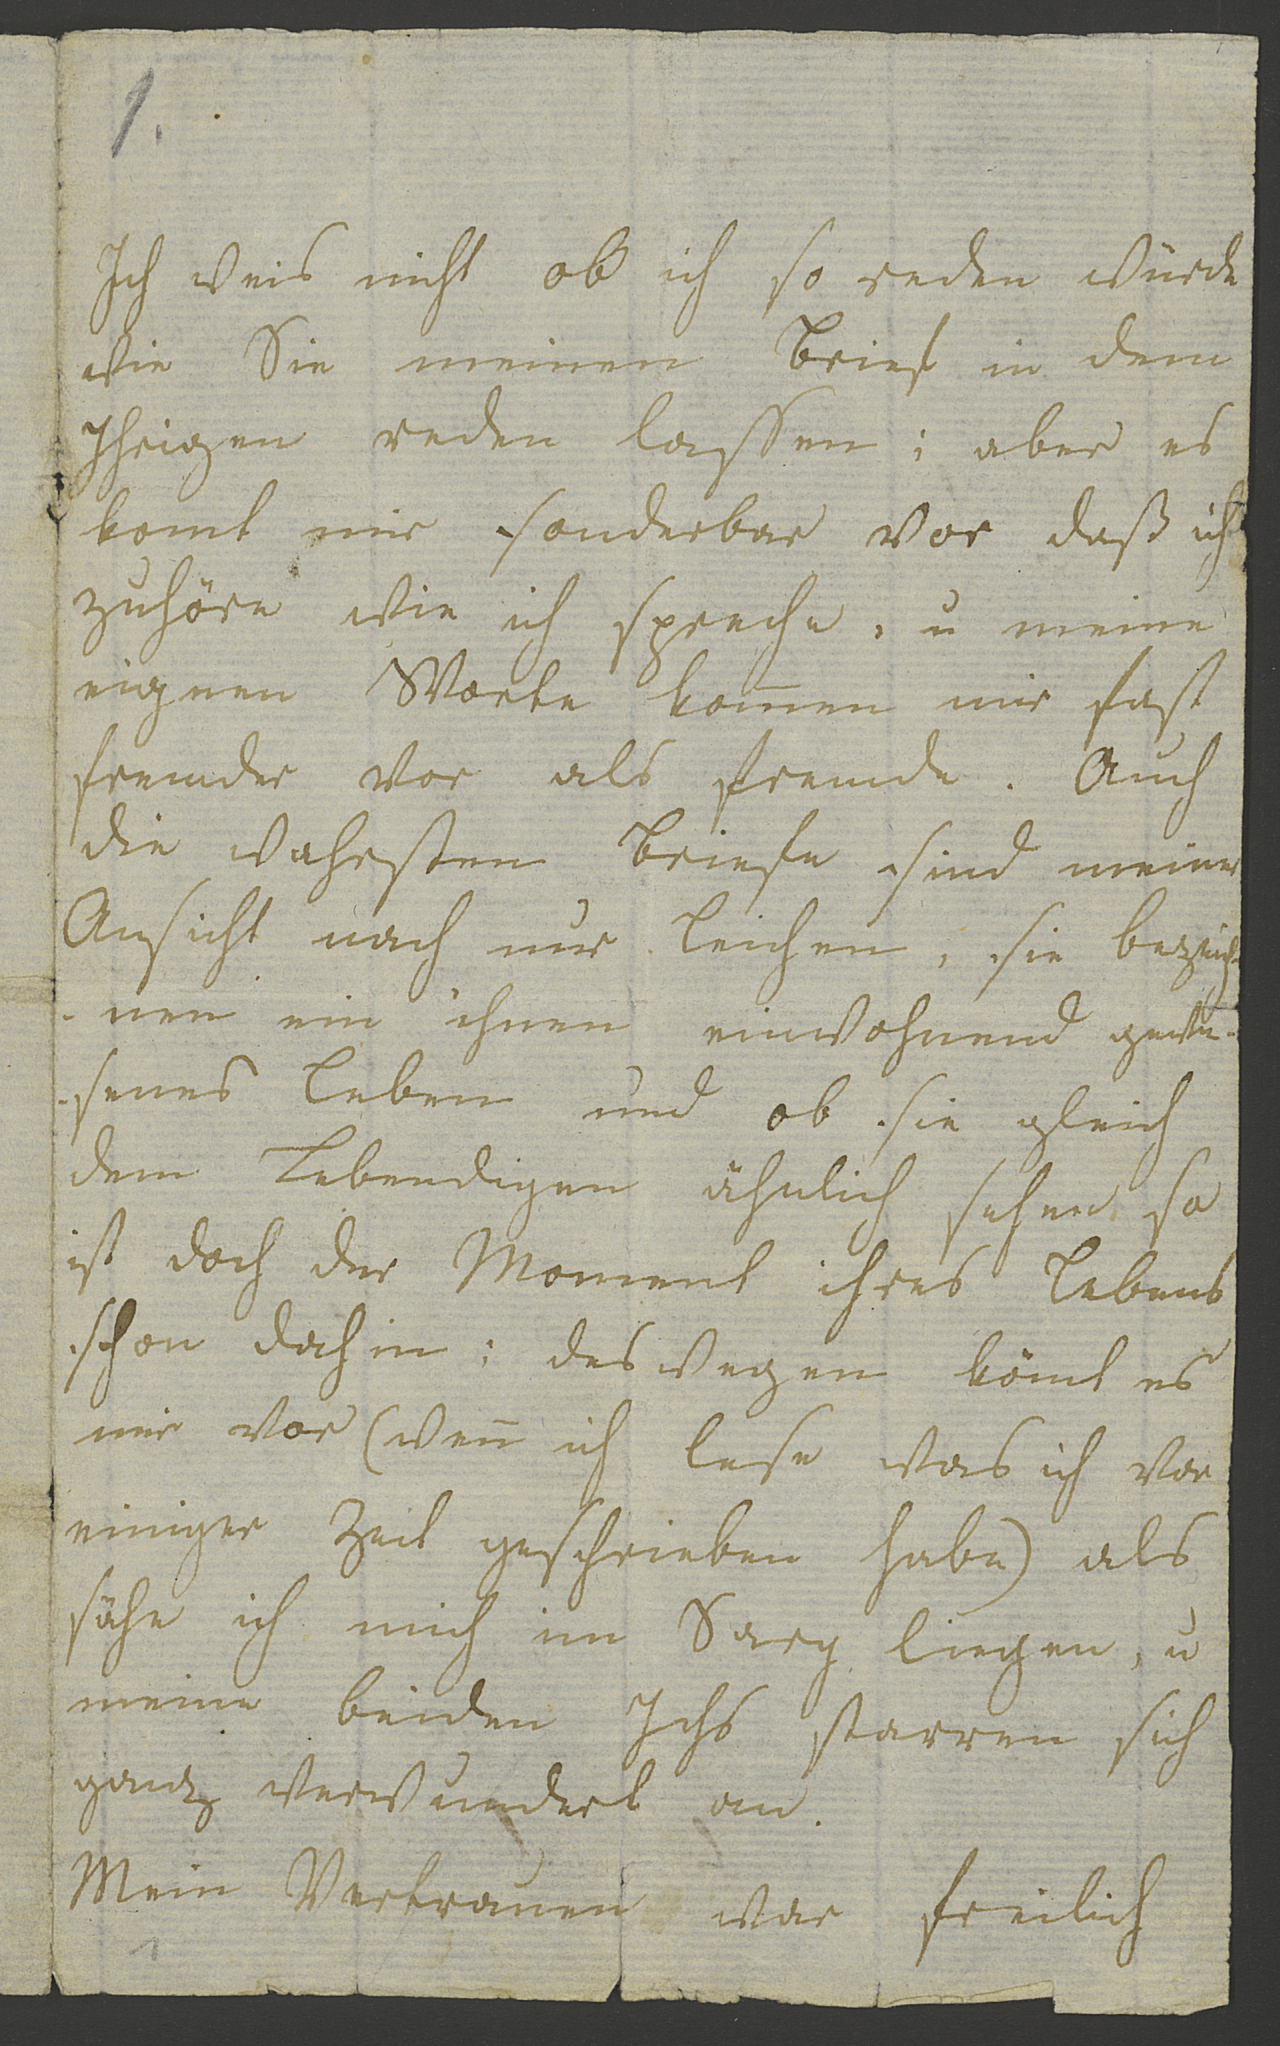 1.
Ich weis nicht ob ich so reden würde
wie Sie meinen Brief in dem
Ihrigen reden lassen; aber es
komt mir sonderbar vor daß ich
zuhöre wie ich spreche, u meine
eignen Worte kom̅en mir fast
fremder vor als fremde. Auch
die wahrsten Briefe sind meiner
Ansicht nach nur Leichen, sie bezeich-
-nen ein ihnen einwohnend gewe-
-senes Leben und ob sie gleich
dem Lebendigen ähnlich sehen, so
ist doch der Moment ihres Lebens
schon dahin; deswegen kömt es
mir vor (wen̅ ich lese was ich vor
einiger Zeit geschrieben habe) als
sähe ich mich im Sarg liegen, u
meine beiden Ichs starren sich
ganz verwundert an.
Mein Vertrauen war freilich
1